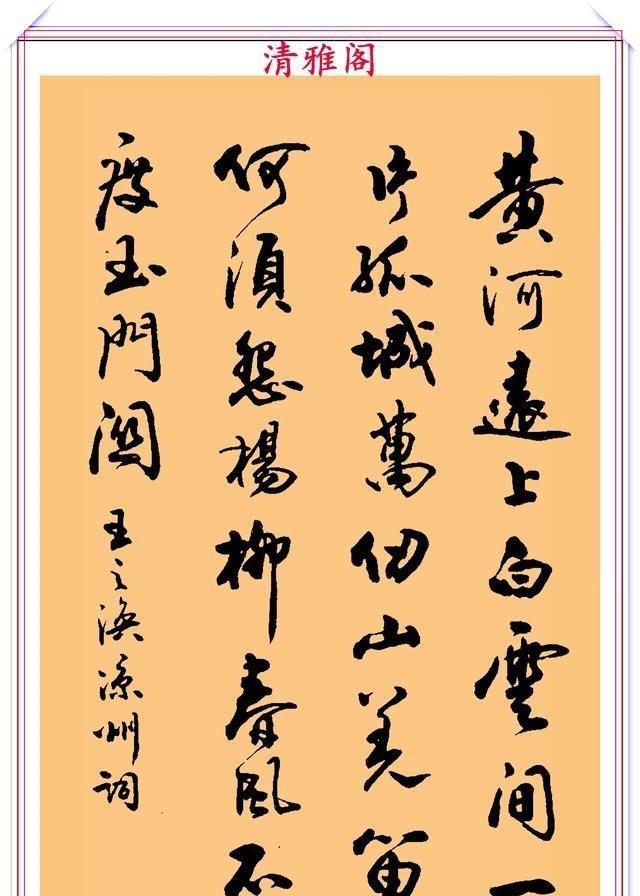 清雅阁
黄河遠上白雲间一
片孤城萬仞山羌笛
何須怨楊柳春風不
度玉門関
王之涣凉州詞